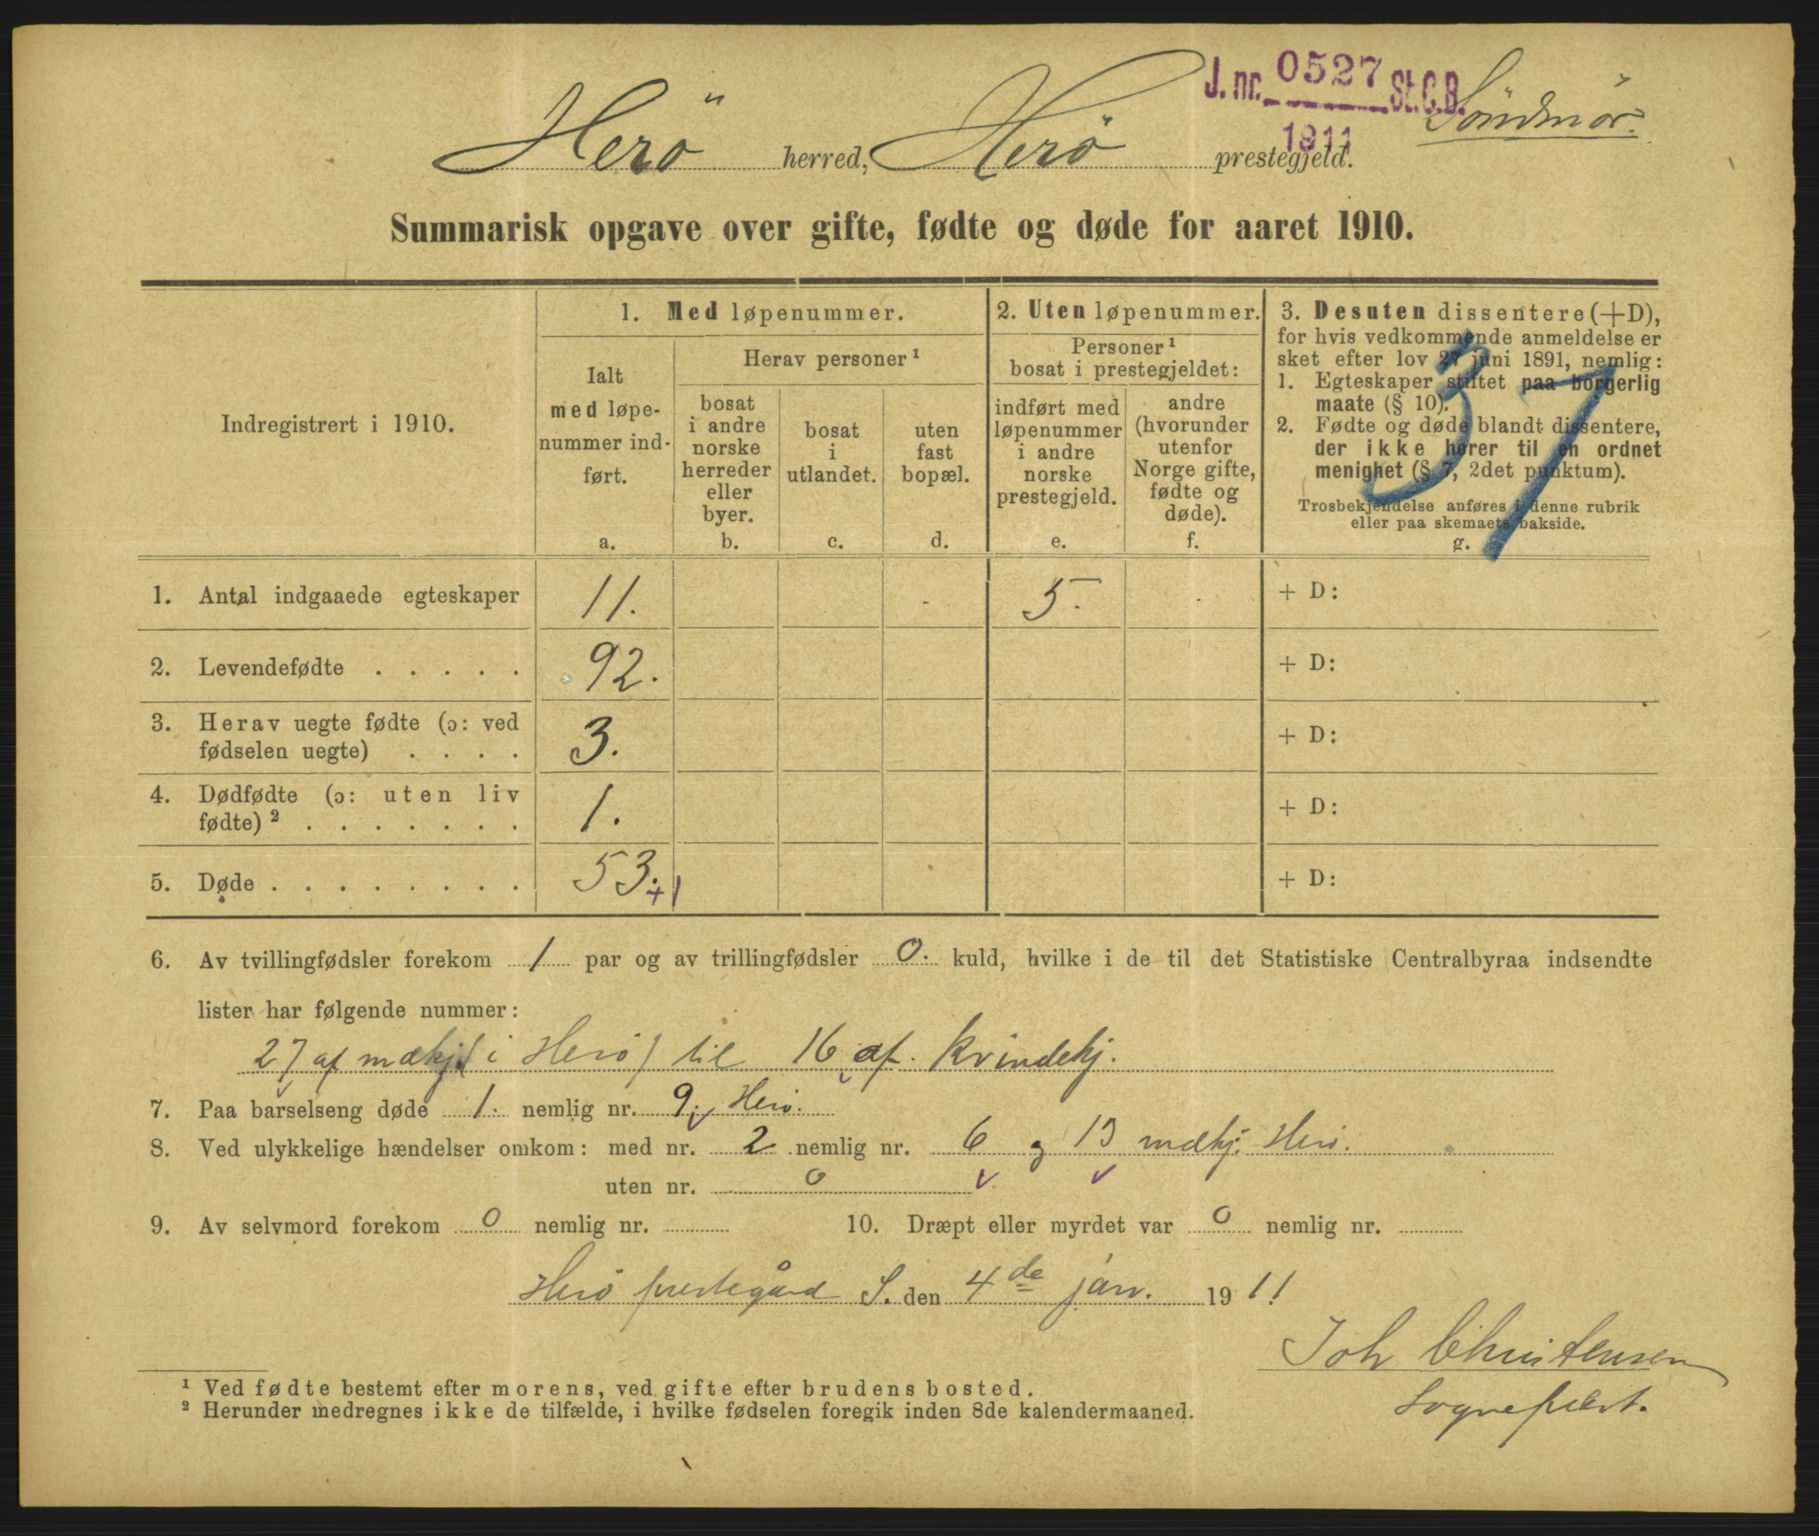 J. nr. 0527 St. C. B.
1911
Söndmör.
Herö herred, Herö prestegjeld.
Summarisk opgave over gifte, fødte og døde for aaret 1910.
Indregistrert i 1910.
1. Med løpenummer.
Ialt
med løpe-
nummer ind-
ført.
a.
Herav personer ¹
bosat
i andre
norske
herreder
eller
byer.
b.
bosat
i
utlandet.
c.
uten
fast
bopæl.
d.
2. Uten løpenummer.
Personer ¹
bosat i prestegjeldet:
indført med
løpenummer
i andre
norske
prestegjeld.
e.
andre
(hvorunder
utenfor
Norge gifte,
fødte og
døde).
f.
3. Desuten dissentere (+D),
for hvis vedkommende anmeldelse er
sket efter lov 27 juni 1891, nemlig:
1. Egteskaper stiftet paa borgerlig
maate (§ 10).
2. Fødte og døde blandt dissentere,
der ikke hører til en ordnet
menighet (§ 7, 2det punktum).
Trosbekjendelse anføres i denne rubrik
eller paa skemaets bakside.
g.
37
1. Antal indgaaede egteskaper 11. - 5. . + D:
2. Levendefødte . . . . . 92. + D:
3. Herav uegte fødte (ɔ: ved
fødselen uegte) . . . . 3. + D:
4. Dødfødte (ɔ: uten liv
fødte) ² . . . . . . . 1. + D:
5. Døde . . . . . . . . 53. +1 + D:
6. Av tvillingfødsler forekom 1 par og av trillingfødsler 0. kuld, hvilke i de til det Statistiske Centralbyraa indsendte
lister har følgende nummer:
27 af mækj. (i Herö) til 16 af. Kvindekj.
7. Paa barselseng døde 1. nemlig nr. 9. Herö.
8. Ved ulykkelige hændelser omkom: med nr. 2 nemlig nr. 6 og 13 mækj. Herö.
uten nr. 0
9. Av selvmord forekom 0 nemlig nr. 10. Dræpt eller myrdet var 0 nemlig nr.
Herö prestegård S. den 4de jan. 1911
Joh Christensen
Sogneprest.
¹ Ved fødte bestemt efter morens, ved gifte efter brudens bosted.
² Herunder medregnes ikke de tilfælde, i hvilke fødselen foregik inden 8de kalendermaaned.